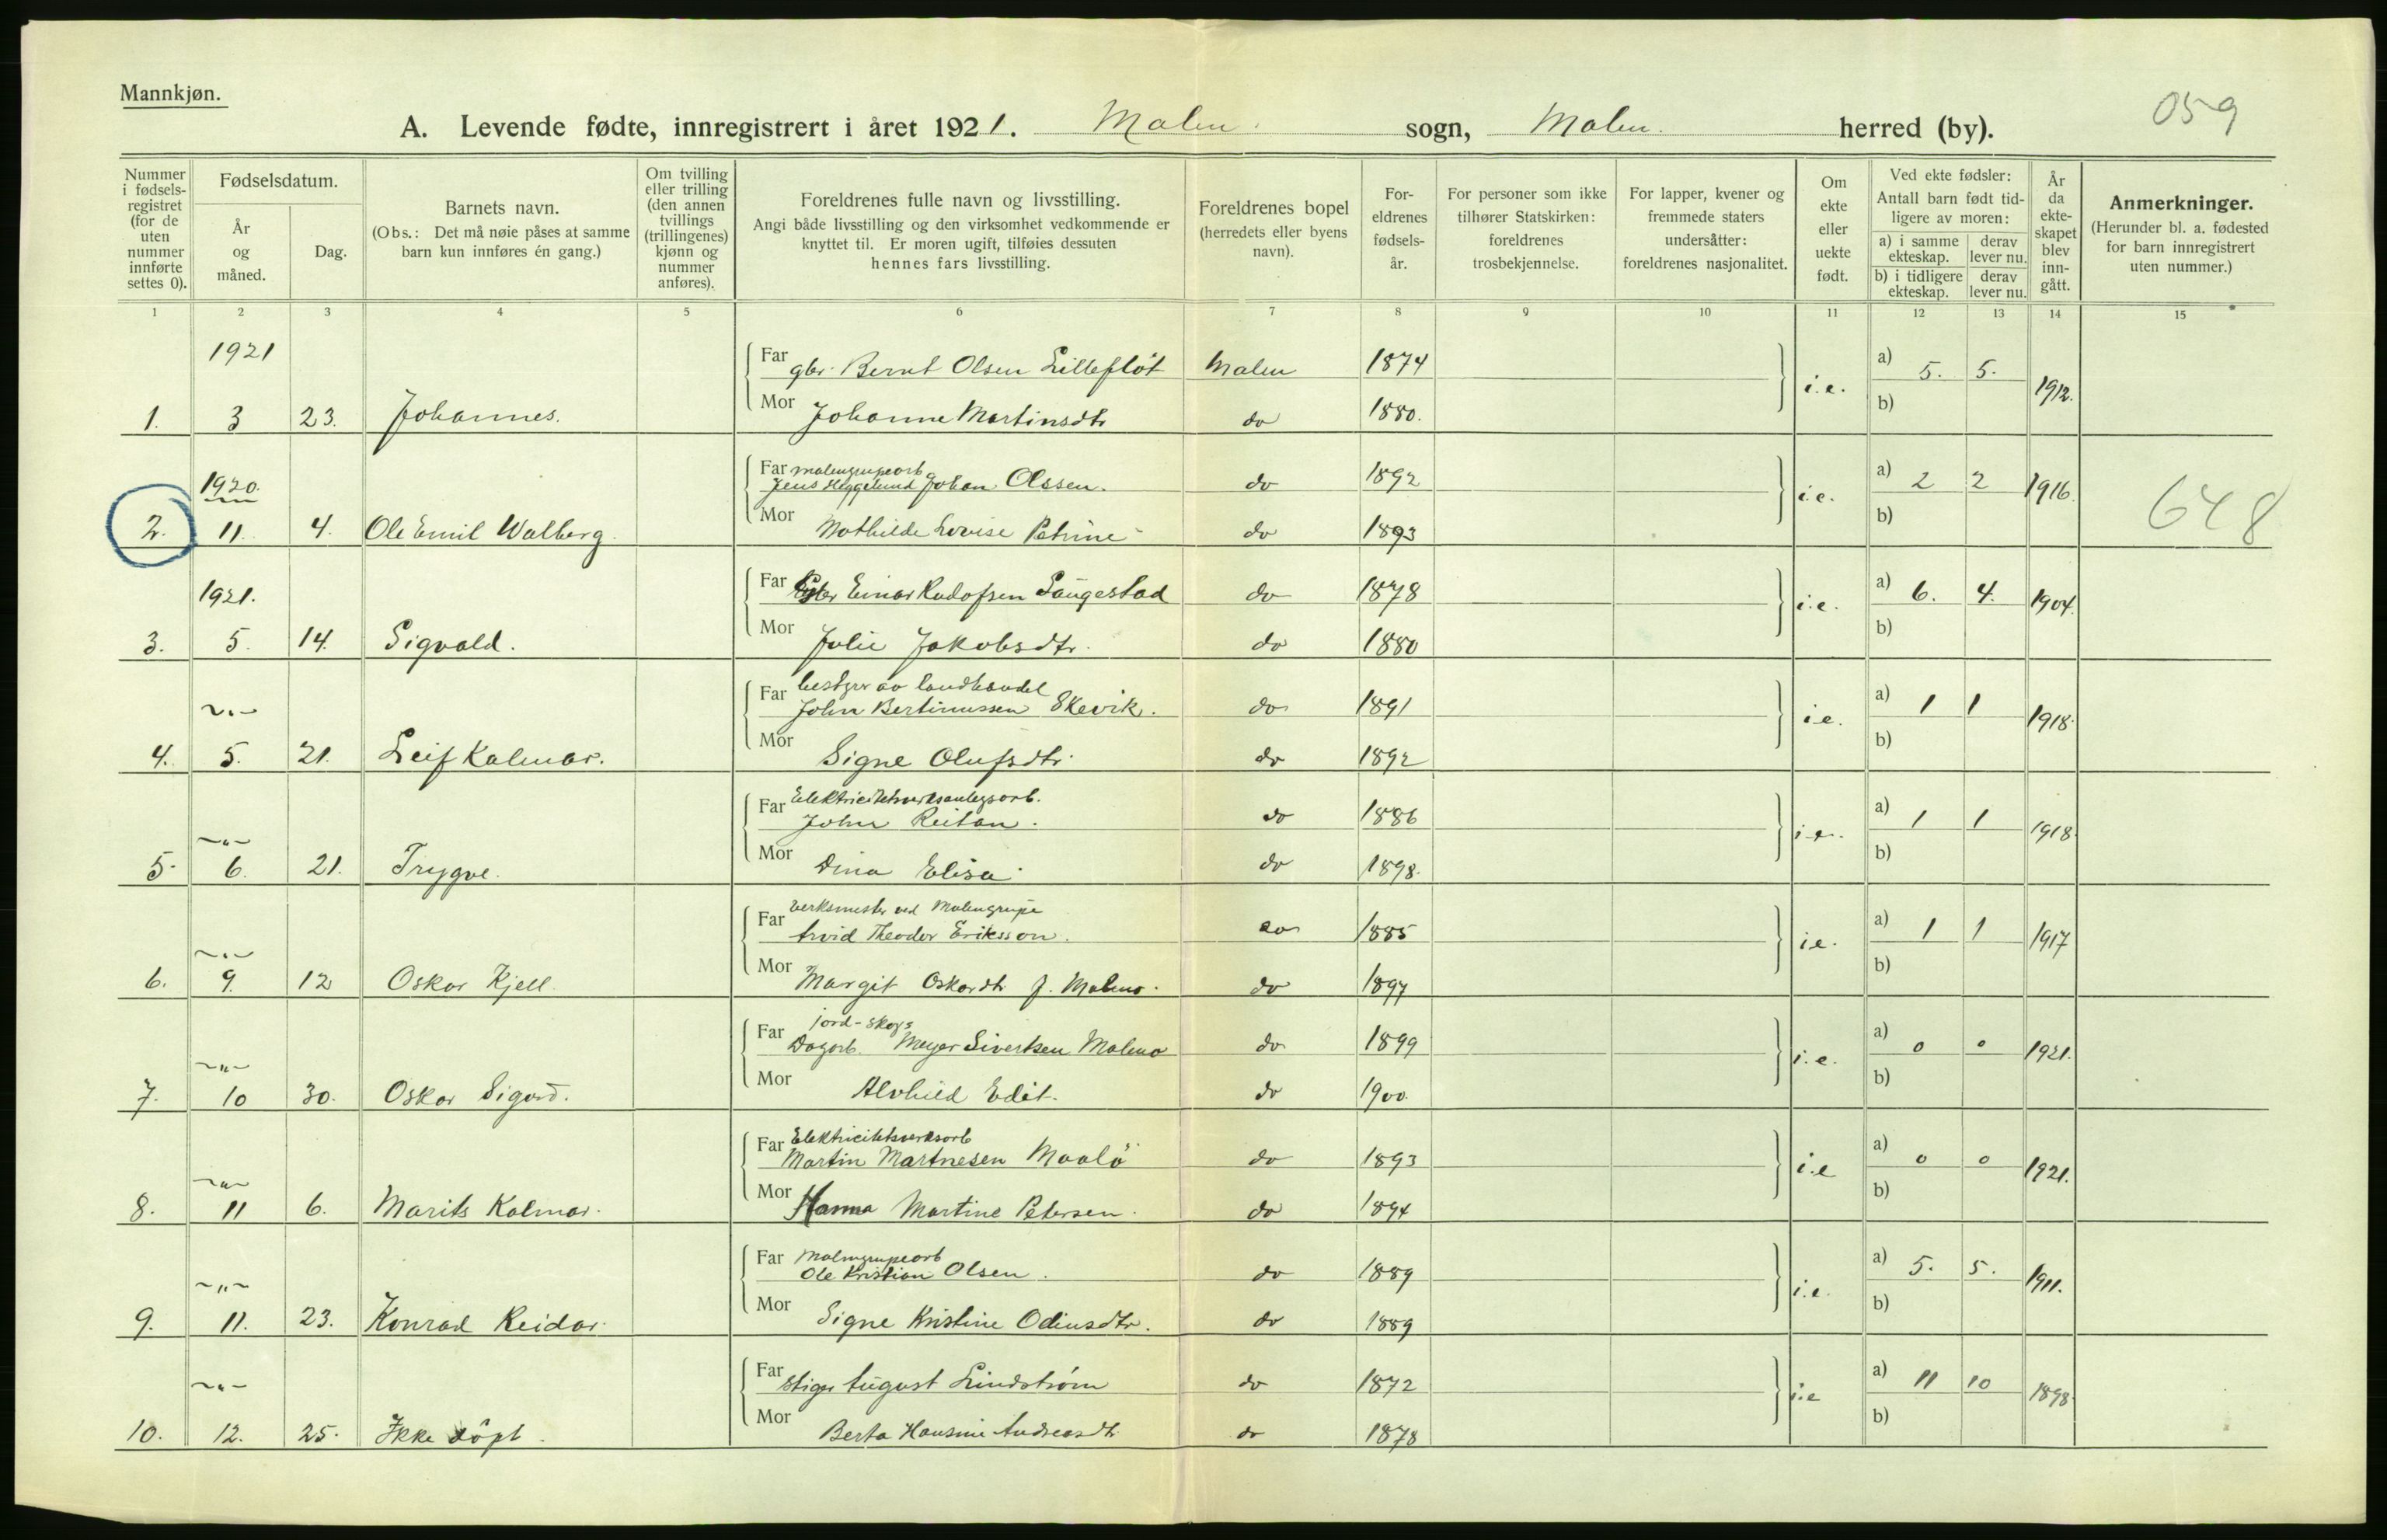 Mannkjøn.
059
A. Levende fødte, innregistrert i året 1921. Malm. sogn, Malm. herred (by).
Nummer i fødsels- registret (for de uten nummer innførte settes 0).
Fødselsdatum.
År og måned.
Dag.
Barnets navn.
(Obs.: Det må nøie påses at samme barn kun innføres én gang.)
Om tvilling eller trilling (den annen tvillings (trillingenes) kjønn og nummer anføres).
Foreldrenes fulle navn og livsstilling.
Angi både livsstilling og den virksomhet vedkommende er knyttet til. Er moren ugift, tilføies dessuten hennes fars livsstilling.
Foreldrenes bopel (herredets eller byens navn).
For- eldrenes fødsels- år.
For personer som ikke tilhører Statskirken: foreldrenes trosbekjennelse.
For lapper, kvener og fremmede staters undersåtter: foreldrenes nasjonalitet.
Om ekte eller uekte født.
Ved ekte fødsler:
Antall barn født tid- ligere av moren:
a) i samme ekteskap. derav lever nu.
b) i tidligere ekteskap. derav lever nu.
År da ekte- skapet blev inn- gått.
Anmerkninger.
(Herunder bl. a. fødested for barn innregistrert uten nummer.)
1 2 3 4 5 6 7 8 9 10 11 12 13 14 15
1921
Far gbr. Bernt Olsen Lilleflöt Malm 1874 a) 5. 5.
1. 3 23. Johannes. Mor Johanne Martinsdtr do 1880. i.e. b) 1912.
1920.
Far malmgrupearb
Jens Heggelund Johan Olssen. do 1892 a) 2 2 1916.
2. 11. 4. Ole Emil Walberg. Mor Mathilde Lovise Petrine do 1893 i.e. b) 648
1921.
Far gbr Einar Rudofsen Saugestad do 1878 a) 6. 4. 1904.
3. 5. 14. Sigvald. Mor Julie Jakobsdtr. do 1880 i.e. b)
Far bestyrer av landhandel
~"~ John Bertinussen Skevik. do 1891 a) 1 1 1918.
4. 5. 21. Leif Kalmar. Mor Signe Olufsdtr. do 1892 i.e. b)
Far Elektricitetsverksanlegsarb.
~"~ John Reitan. do 1886 a) 1 1 1918.
5. 6. 21. Trygve. Mor Dina Elisa do 1898. i.e. b)
Far Verksmester ved Malmgrupe
~"~ Arvid Theodor Eriksson. do 1885 a) 1 1 1917
6. 9. 12 Oskar Kjell. Mor Margit Oskardtr f. Malmo. do 1897 i.e. b)
Far jord-skogs
~"~ Dagarb. Meyer Sivertsen Malmo do 1899 a) 0 0 1921.
7. 10 30. Oskar Sigurd. Mor Alvhild Edit. do 1900. i.e. b)
Far Elektricitetsverksarb
~"~ Martin Martnesen Maalö do 1893 a) 0 0 1921.
8. 11 6. Marits Kalmar. Mor Hanna Martine Petersen. do 1894 i.e b)
Far Malmgrupearb
~"~ Ole Kristian Olsen. do 1889 a) 5. 5. 1911.
9. 11. 23. Konrad Reidar. Mor Signe Kristine Odinsdtr. do 1889 i.e. b)
~"~ Far Stiger August Lindström do 1872 a) 11 10 1898.
10. 12. 25. Ikke döpt. Mor Berta Hansine Andreasdtr do 1878 i.e b)